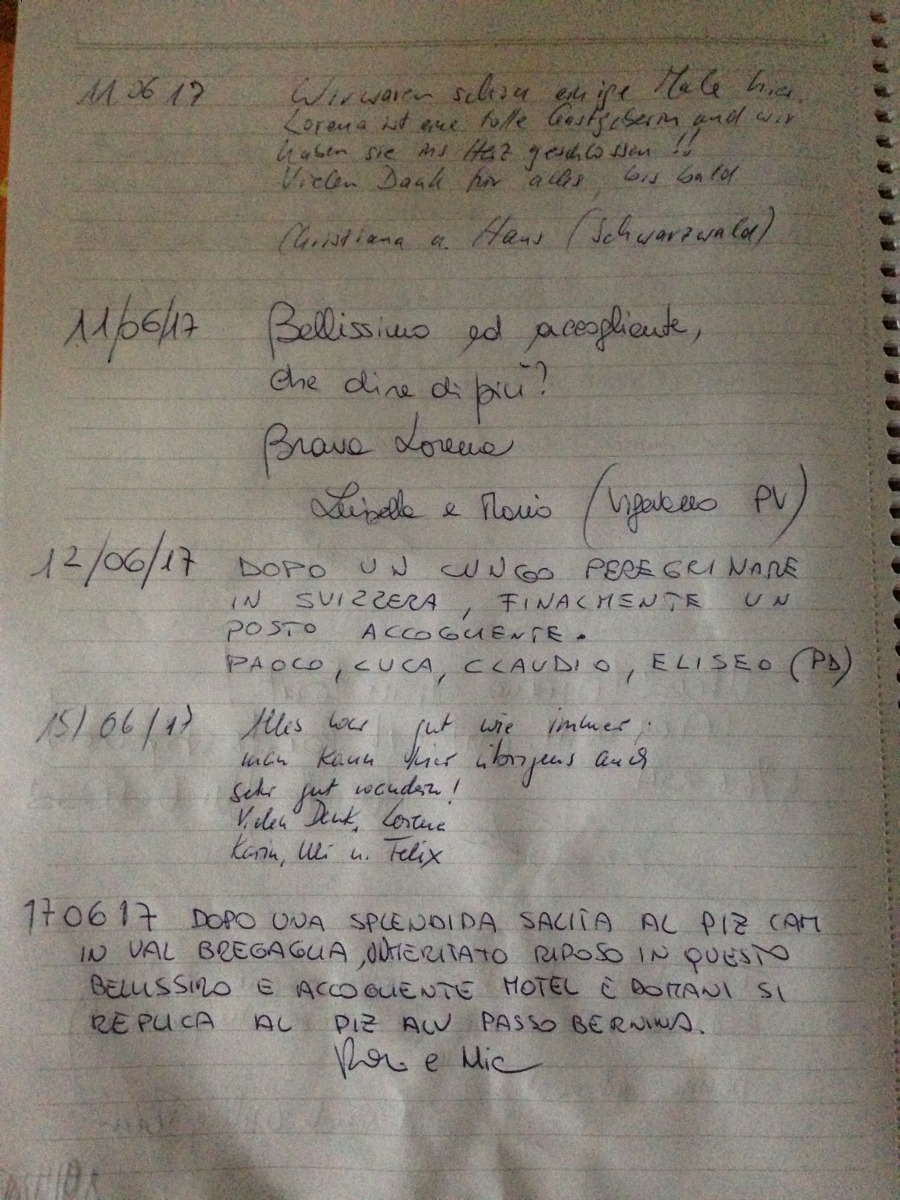 11 06 17 Wir waren schon einige Male hier.
Lorena ist eine tolle Gastgeberin und wir
haben sie ins Herz geschlossen !!
Vielen Dank für alles, bis bald
Christiana u. Hans (Schwarzwald)
11/06/17 Bellissimo ed accogliente,
che dire di più?
Brava Lorena
Luisella e Mario (Vigevano PV)
12/06/17 DOPO UN LUNGO PEREGRINARE
IN SVIZZERA, FINALMENTE UN
POSTO ACCOGLIENTE.
PAOLO, LUCA, CLAUDIO, ELISEO (PD)
15/06/17 Alles war gut wie immer;
man kann hier übrigens auch
sehr gut wandern!
Vielen Dank, Lorena
Karin, Uli u. Felix
17 06 17 DOPO UNA SPLENDIDA SALITA AL PIZ CAM
IN VAL BREGAGLIA, MERITATO RIPOSO IN QUESTO
BELLISSIMO E ACCOGLIENTE MOTEL E DOMANI SI
REPLICA AL PIZ ALV PASSO BERNINA.
e Mic